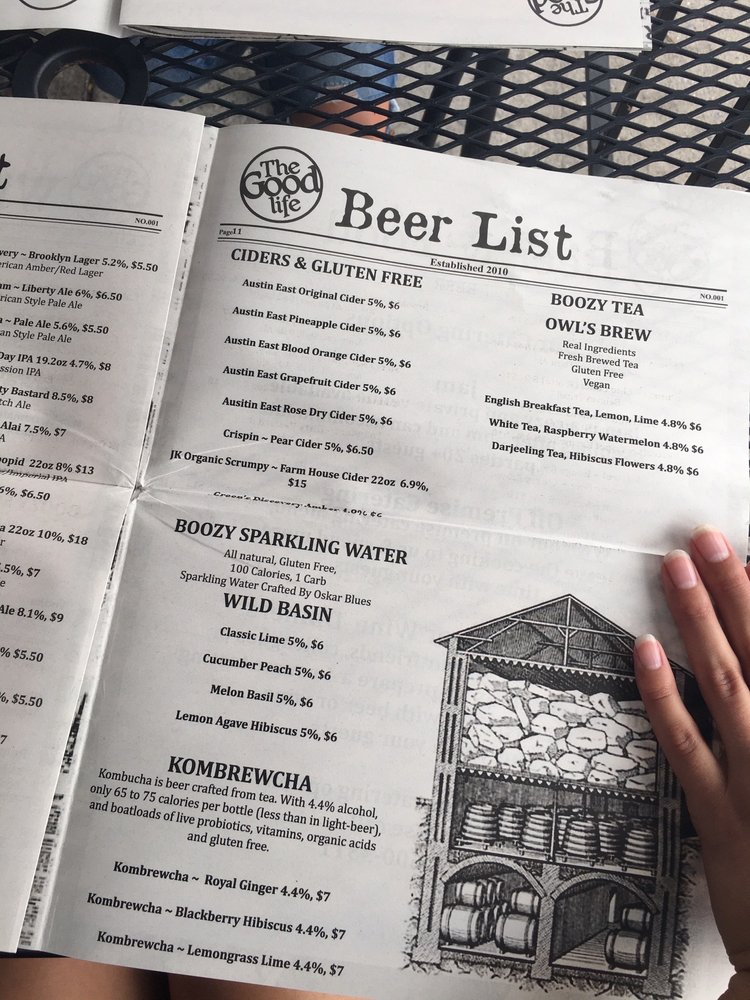 The
Good
t
NO.001
very ~ Brooklyn Lager 5.2%, $5.50
erican Amber/Red Lager
am ~ Liberty Ale 6%, $6.50
can Style Pale Ale
a ~ Pale Ale 5.6%, $5.50
can Style Pale Ale
Day IPA 19.2oz 4.7%, $8
ssion IPA
ty Bastard 8.5%, $8
tch Ale
Alai 7.5%, $7
A
opid 22oz 8% $13
e/Imperial IPA
6%, $6.50
a 22oz 10%, $18
r
.5%, $7
e
Ale 8.1%, $9
% $5.50
%, $5.50
7
The
Good
life
Beer List
Page11
Established 2010
NO.001
CIDERS & GLUTEN FREE
Austin East Original Cider 5%, $6
Austin East Pineapple Cider 5%, $6
Austin East Blood Orange Cider 5%, $6
Austin East Grapefruit Cider 5%, $6
Ausitin East Rose Dry Cider 5%, $6
Crispin ~ Pear Cider 5%, $6.50
JK Organic Scrumpy ~ Farm House Cider 22oz 6.9%,
$15
Green's Discovery Amber
BOOZY SPARKLING WATER
All natural, Gluten Free,
100 Calories, 1 Carb
Sparkling Water Crafted By Oskar Blues
WILD BASIN
Classic Lime 5%, $6
Cucumber Peach 5%, $6
Melon Basil 5%, $6
Lemon Agave Hibiscus 5%, $6
KOMBREWCHA
Kombucha is beer crafted from tea. With 4.4% alcohol,
only 65 to 75 calories per bottle (less than in light-beer),
and boatloads of live probiotics, vitamins, organic acids
and gluten free.
Kombrewcha ~ Royal Ginger 4.4%, $7
Kombrewcha ~ Blackberry Hibiscus 4.4%, $7
Kombrewcha ~ Lemongrass Lime 4.4%, $7
BOOZY TEA
OWL'S BREW
Real Ingredients
Fresh Brewed Tea
Gluten Free
Vegan
English Breakfast Tea, Lemon, Lime 4.8% $6
White Tea, Raspberry Watermelon 4.8% $6
Darjeeling Tea, Hibiscus Flowers 4.8% $6